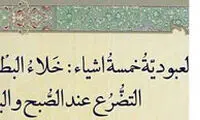 لعبوديّةُ خمسة أشياء: خَلاءُ البطْ
التضّرُع عند الصُّبح والب